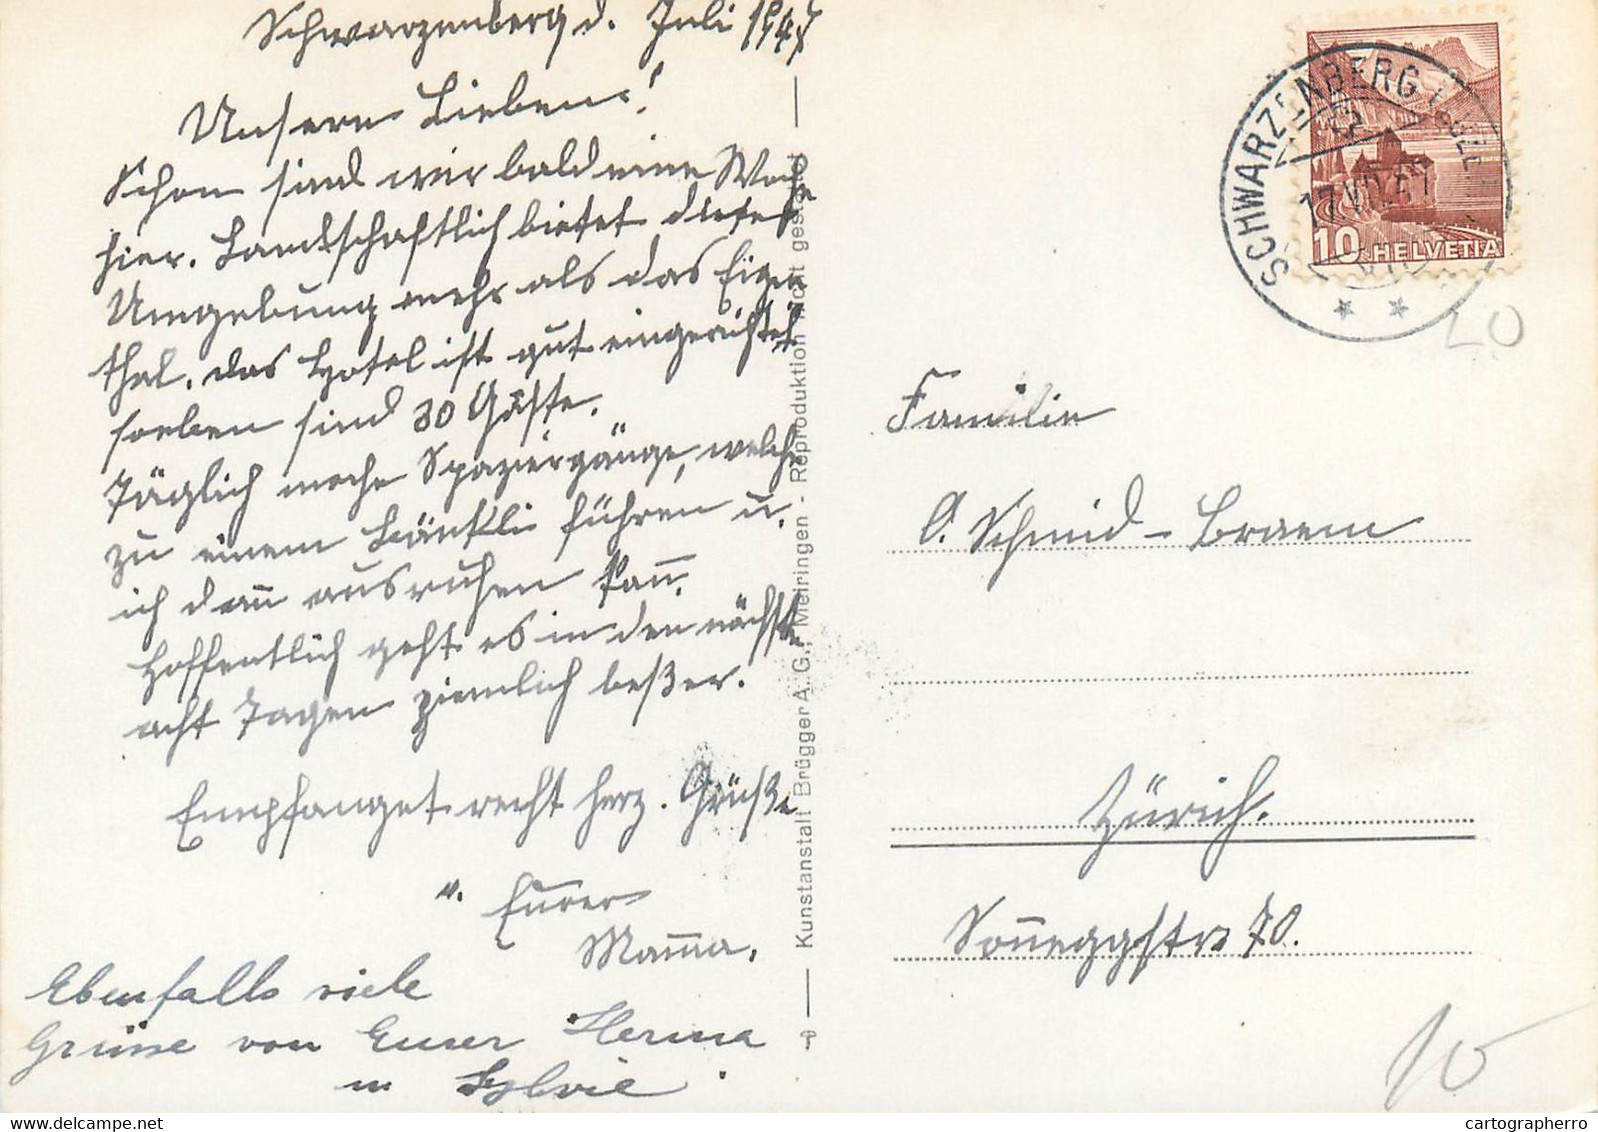 Schwarzenberg d. Juli 1947
Unsere Lieben!
Schon sind wir bald eine Woche
hier. Landschaftlich bietet diese
Umgebung mehr als das Eigen
thal. das Hotel ist gut eingerichtet
soeben sind 30 Gäste.
Täglich mache Spaziergänge, welche
zu einem Bänkli führen u.
ich dann ausruhen kann.
Hoffentlich geht es in den nächste
acht Tagen ziemlich beßer.
Empfanget recht herz. Grüße
v. Eurer
Mama.
Ebenfalls viele
Grüsse von Euer Herma
u Sylvie
Kunstanstalt Brügger A. G., Meiringen - Reproduktion nicht gestattet
SCHWARZENBERG
17.VII.47
10 HELVETIA
Familie
O. Schmid-Braem
Zürich.
Sonneggstr 70.
10
cartographerro